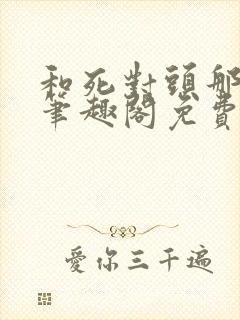 和死對頭那
筆趣閣免費
愛你三千遍